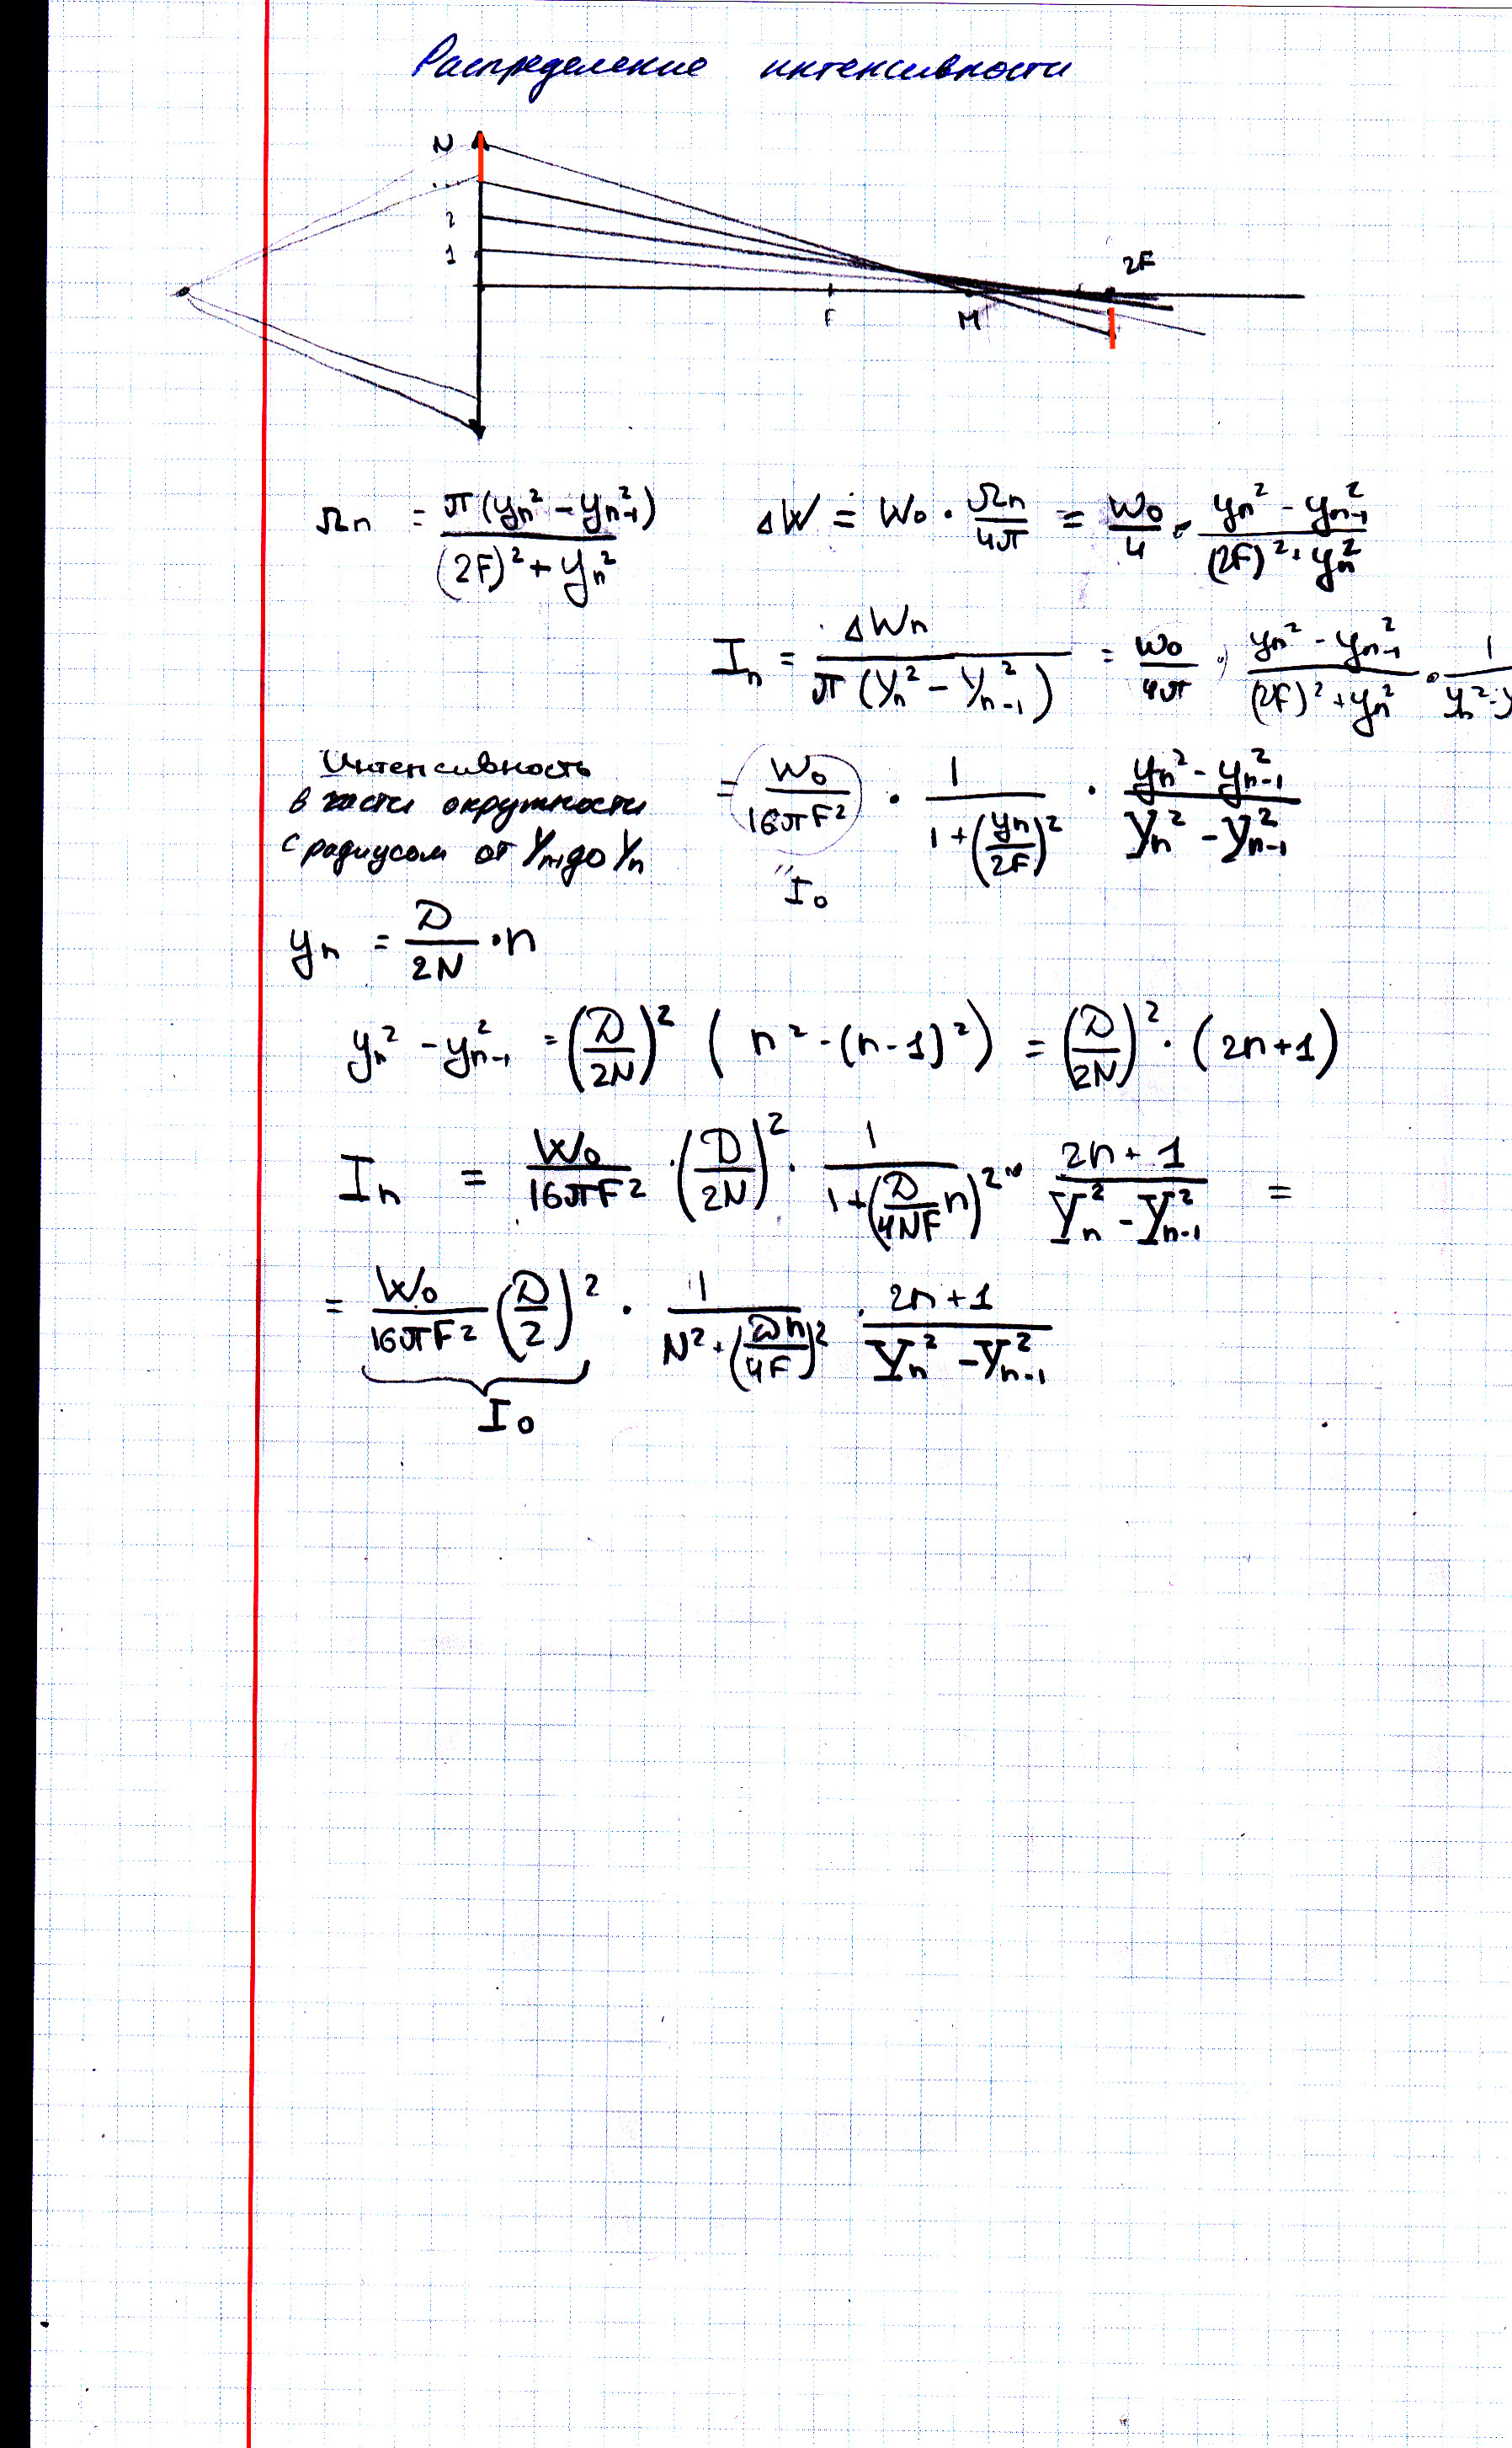 Распределение интенсивности
N
...
2
1
F
M
2F
Ωn = π(yn² - yn-1²) / ((2F)² + yn²)    ΔW = W0 · Ωn/4π = W0/4 · (yn² - yn-1²) / ((2F)² + yn²)
In = ΔWn / (π(Yn² - Yn-1²)) = W0/4π · (yn² - yn-1²) / ((2F)² + yn²) · 1 / (Yn² - Y
Интенсивность
в части окружности
с радиусом от Yn-1 до Yn
= W0/(16πF²) · 1 / (1 + (yn/2F)²) · (yn² - yn-1²) / (Yn² - Yn-1²)
" I0
yn = D/2N · n
yn² - yn-1² = (D/2N)² (n² - (n-1)²) = (D/2N)² · (2n+1)
In = W0/(16πF²) · (D/2N)² · 1 / (1 + (D/4NF n)²) · (2n+1) / (Yn² - Yn-1²) =
= W0/(16πF²) (D/2)² · 1 / (N² + (Dn/4F)²) · (2n+1) / (Yn² - Yn-1²)
I0